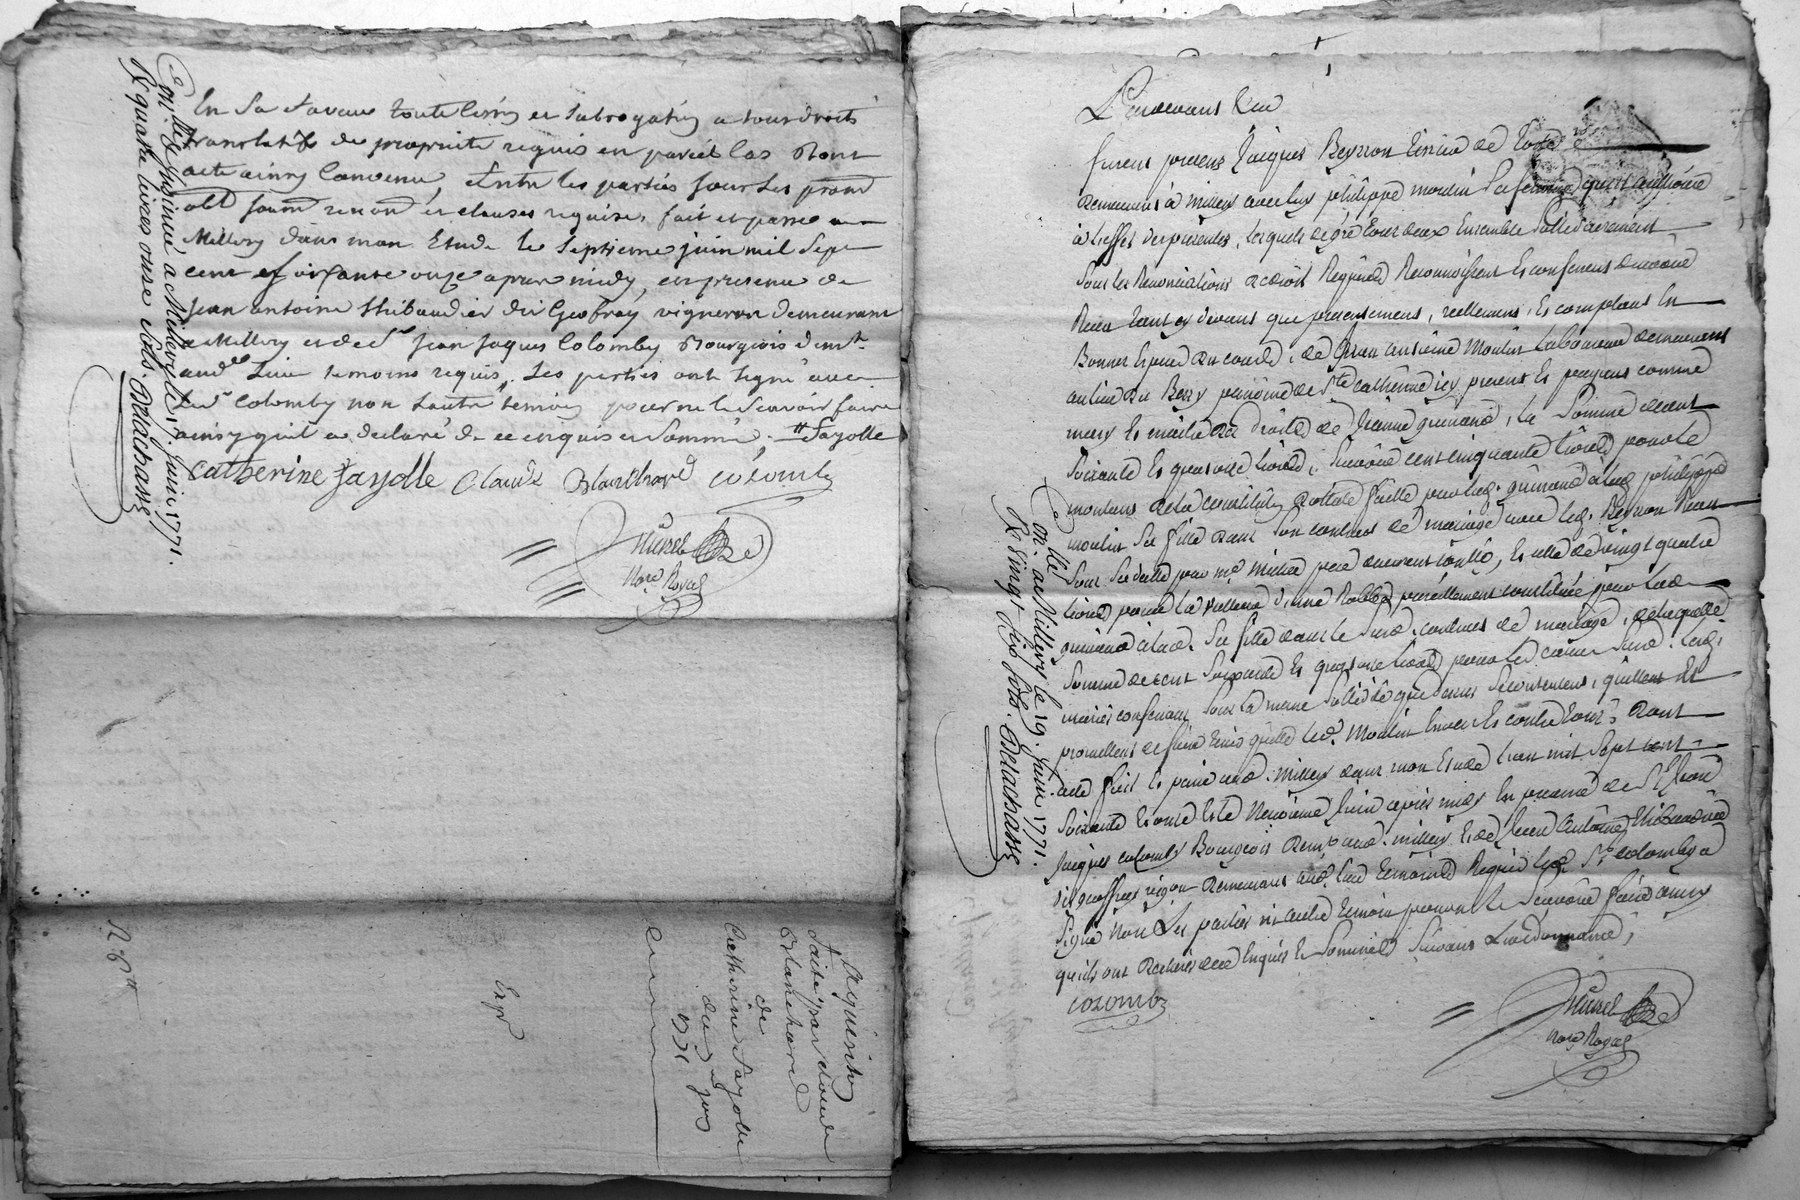 En sa faveur toute cession et subrogation a tous droits
translatifs de propriete requis en pareil cas Dont
acte ainsy Convenu, Entre les parties sous les prom
obl soum renon et clauses requises, fait et passé a
Millery dans mon Etude le septieme juin mil sept
cent soixante onze apres midy, en presence de
Jean antoine thibaudier dit Geofray vigneron demeurant
a Millery et de sr Jean Jaques Colomby Bourgeois demt
aud lieu temoins requis. Les parties ont signé avec
led sr Colomby non l'autre temoin pour ne le scavoir faire
ainsy quil a declaré de ce enquis et sommé. Fayolle
Catherine fayolle Claude Blanchard colomby
Nore Royal
Con. lle & Insinué a Millery le 17. Juin 1771.
R quatre livres onze sols. Delachasse
Acquisition
faite par Claude
Blanchard
de
Catherine Fayolle
du 7 juin
1771
Exp
Pardevant
furent presens Jacques Beyron
demeurant à millery avec luy philippe moulin sa femme quil authorise
à l'effet des presentes, lesquels de gré tous deux Ensemble solidairement
sous les Renonciations de droit Requises Reconnoissent et confessent avoir
Receu tant cy devant que presentement, réellement, et comptant En
Bonnes especes du cours, de Jean antoine Moulin Laboureur demeurant
au lieu du Bery paroisse de Ste Catherine icy present et payant comme
mary et maitre des droits de Jeanne guinand, la somme de cent
soixante et quatorze livres, scavoir cent cinquante livres pour le
montant de la constitution dottale faitte par lad. guinand a lad. philippe
moulin sa fille dans son contract de mariage avec led. Beyron Receu
livres pour la valleur d'une Robbe pareillement constituée par lad.
guinand à lad. sa fille dans le susd. contract de mariage, de laquelle
somme de cent soixante et quatorze livres pour les causes susd. lesd.
mariés confessant sous la meme solidité que dessus se contentent, quittent et
promettent de faire tenir quitte led. Moulin Envers et contre tous. Dont
acte fait et passé aud. millery dans mon Etude l'an mil sept cent
soixante et onze et le neuvieme juin après midy En presence de Sr Jean
Jacques colomby Bourgeois demt aud. millery et de Jean Antoine thibaudier
dit geoffrey vigon demeurant aud. lieu temoins Requis led. Sr. colomby a
signé non les parties ni autre temoin pour ne le scavoir faire ainsy
quils ont déclarés de ce Enquis et sommés suivant L'ordonnance,
colomby
Nore Royal
Con. lle a Millery le 19. Juin 1771.
R vingt six sols. Delachasse